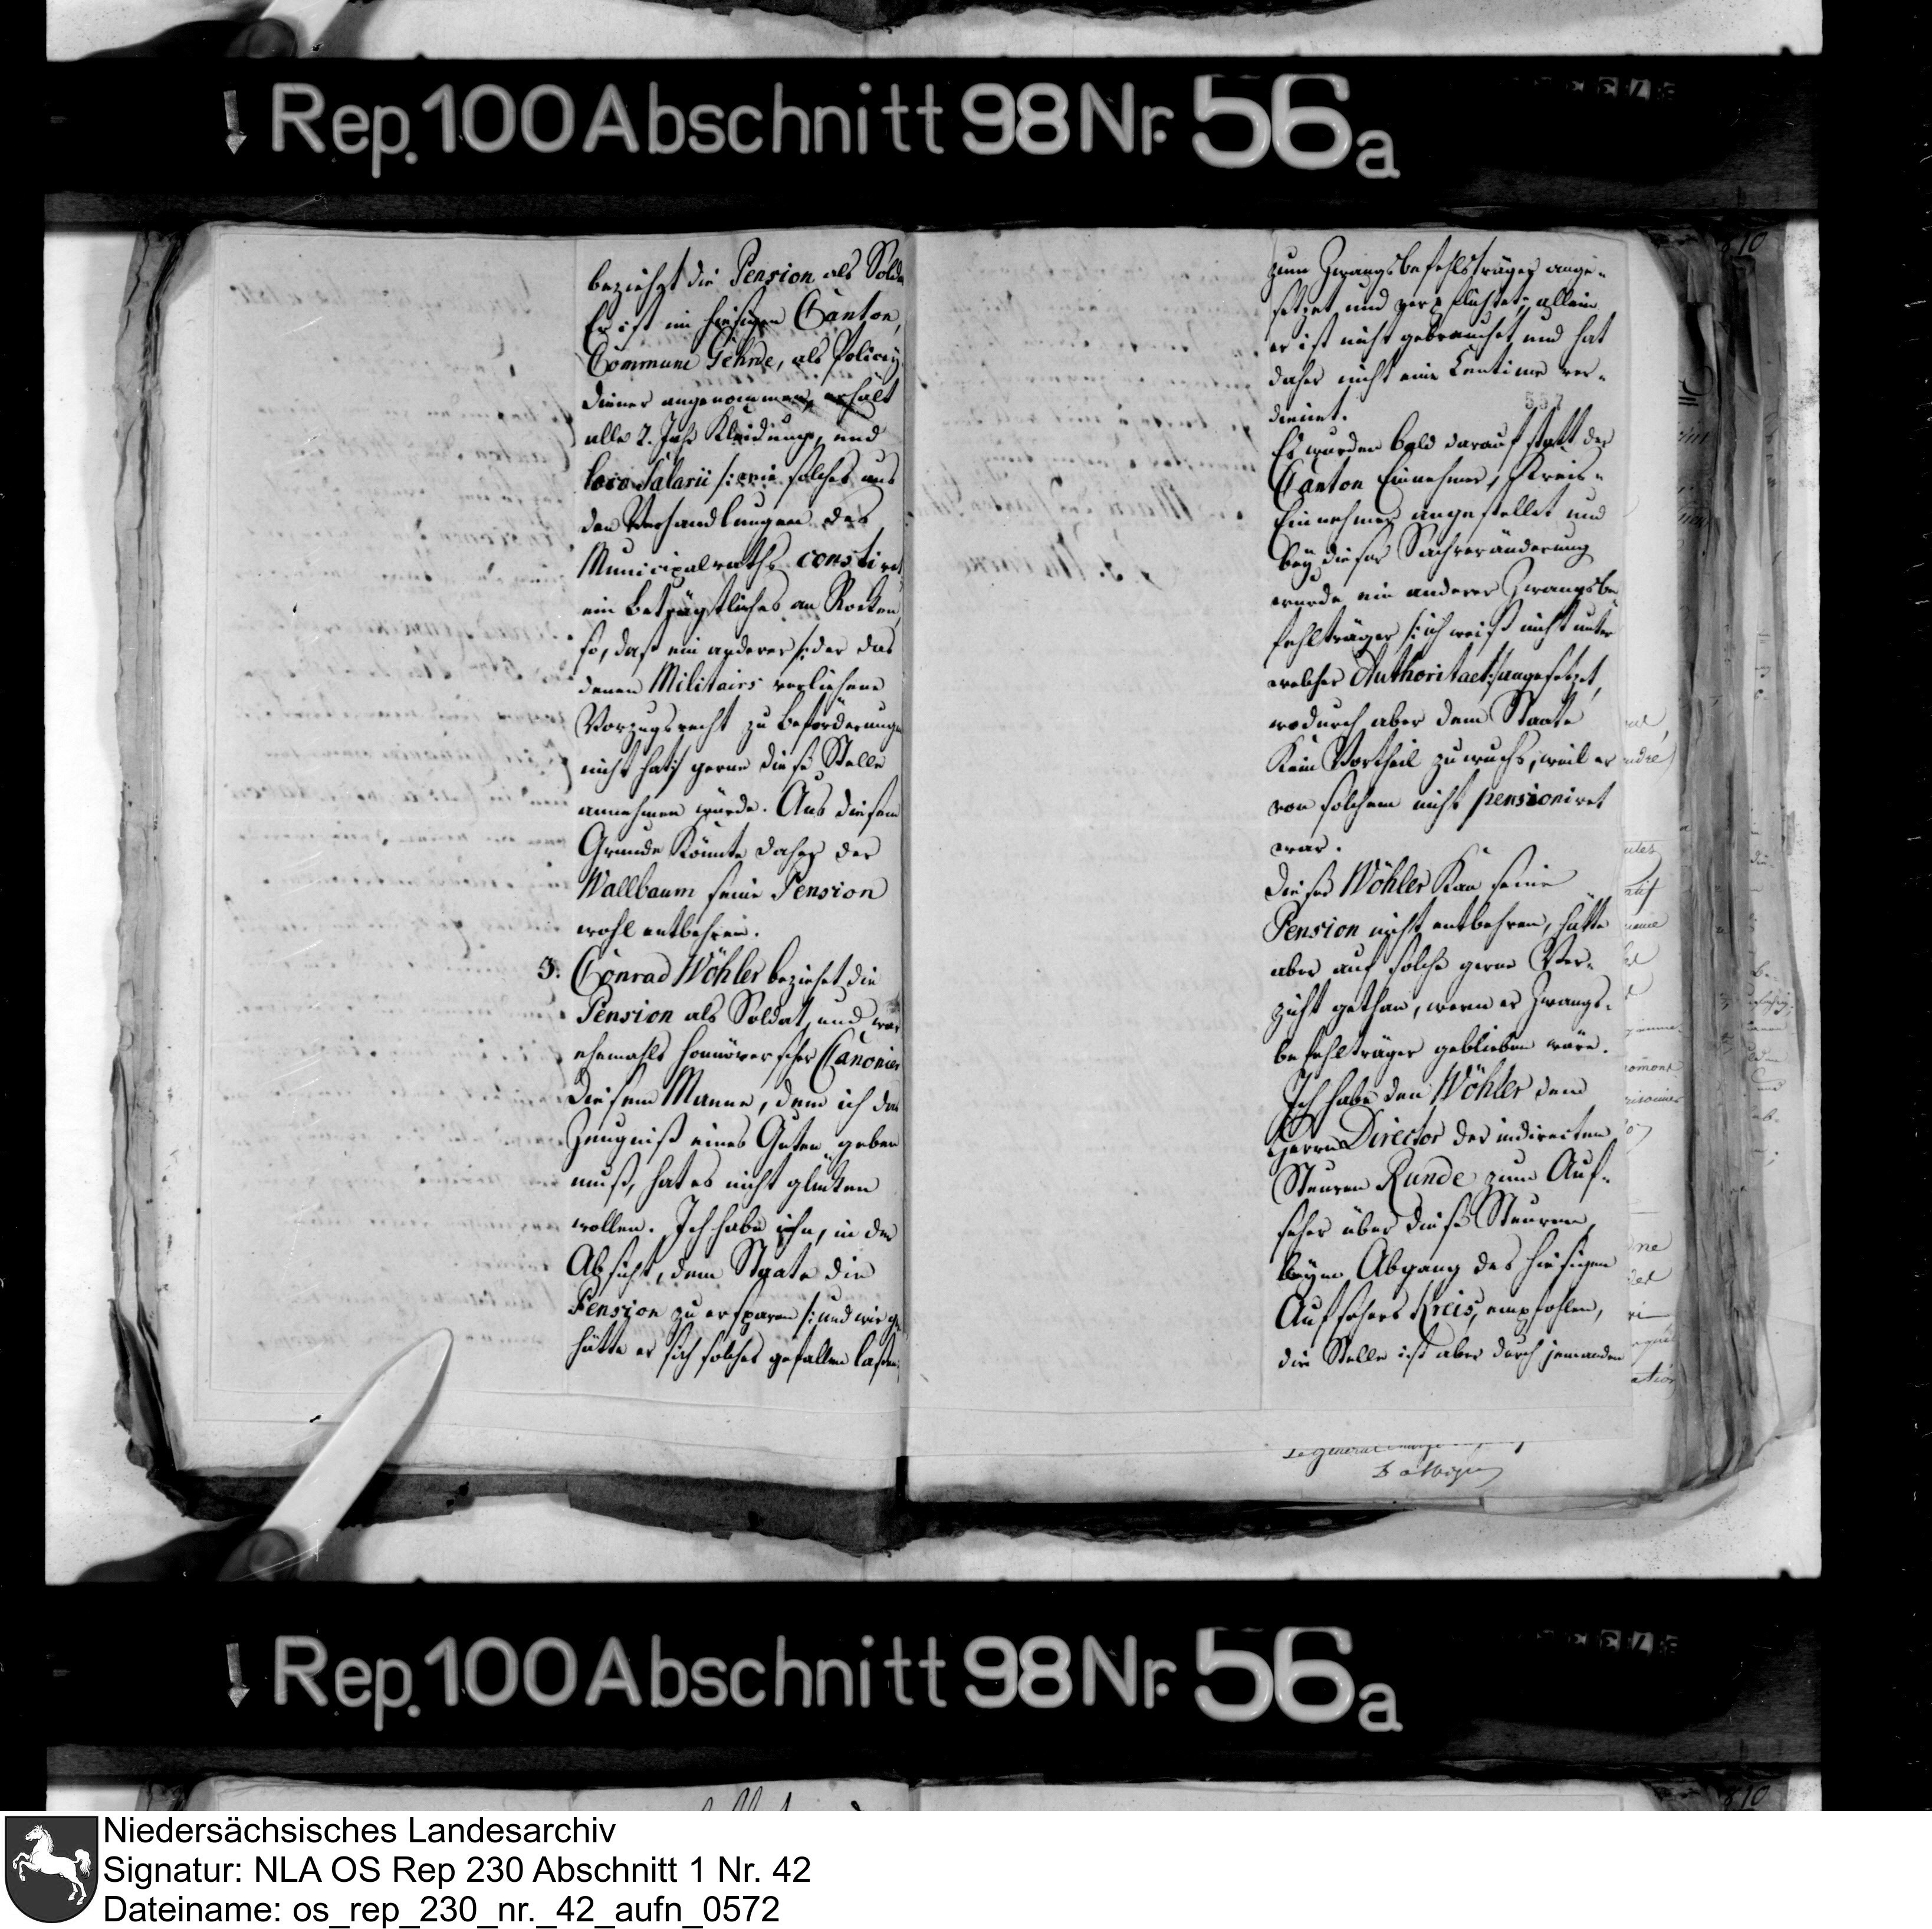 Rep. 100 Abschnitt 98 Nr. 56a
beziehet die Pension als Solda
Er ist im hiesigen Canton,
Commune Gehrde, als Policey
diener angenommen, erhält
alle 2. Jahr Kleidung, und
loco Salarii /: wie solches aus
den Verhandlungen des
Municipalraths constiret
ein beträgtliches an Rocken
so, daß ein anderer /: der das
denen Militairs verliehene
Vorzugsrecht zu Beförderunge
nicht hat :/ gerne diese Stelle
annehmen würde. Aus diesem
Grunde könnte daher der
Wallbaum seine Pension
wohl entbehren.
3. Conrad Wöhler beziehet die
Pension als Soldat, und war
ehemahls hannöverscher Canonier
Diesem Manne, dem ich das
Zeugniß eines Guten geben
muß, hat es nicht glücken
wollen. Ich habe ihn, in der
Absicht, dem Staate die
Pension zu ersparen /: und wie ge
hätte er sich solches gefallen laßen
810
zum Zwangsbefehlsträger ange-
setzet und verpflichtet; allein
er ist nicht gebrauchet und hat
daher nicht eine Centime ver-
dienet.
Es wurden bald darauf statt der
Canton Einnehmer, Kreis-
Einnehmer angestellet und
bey dieser Sachveränderung
wurde ein anderer Zwangsbe
fehlträger /: ich weiß nicht unter
welcher Authoritaet :/ angesetzet,
wodurch aber dem Staate
kein Vortheil zuwuchs, weil er
von solchem nicht pensioniret
war.
Dieser Wöhler kan seine
Pension nicht entbehren, hätte
aber auf solche gerne Ver-
zicht gethan, wenn er Zwangs-
befehlträger geblieben wäre.
Ich habe den Wöhler dem
Herrn Director der indirecten
Steuren Runde zum Auf-
seher über diese Steuren,
beym Abgang des hiesigen
Aufsehers Kreis, empfohlen,
die Stelle ist aber durch jemanden
Rep. 100 Abschnitt 98 Nr. 56a
810
Niedersächsisches Landesarchiv
Signatur: NLA OS Rep 230 Abschnitt 1 Nr. 42
Dateiname: os_rep_230_nr._42_aufn_0572